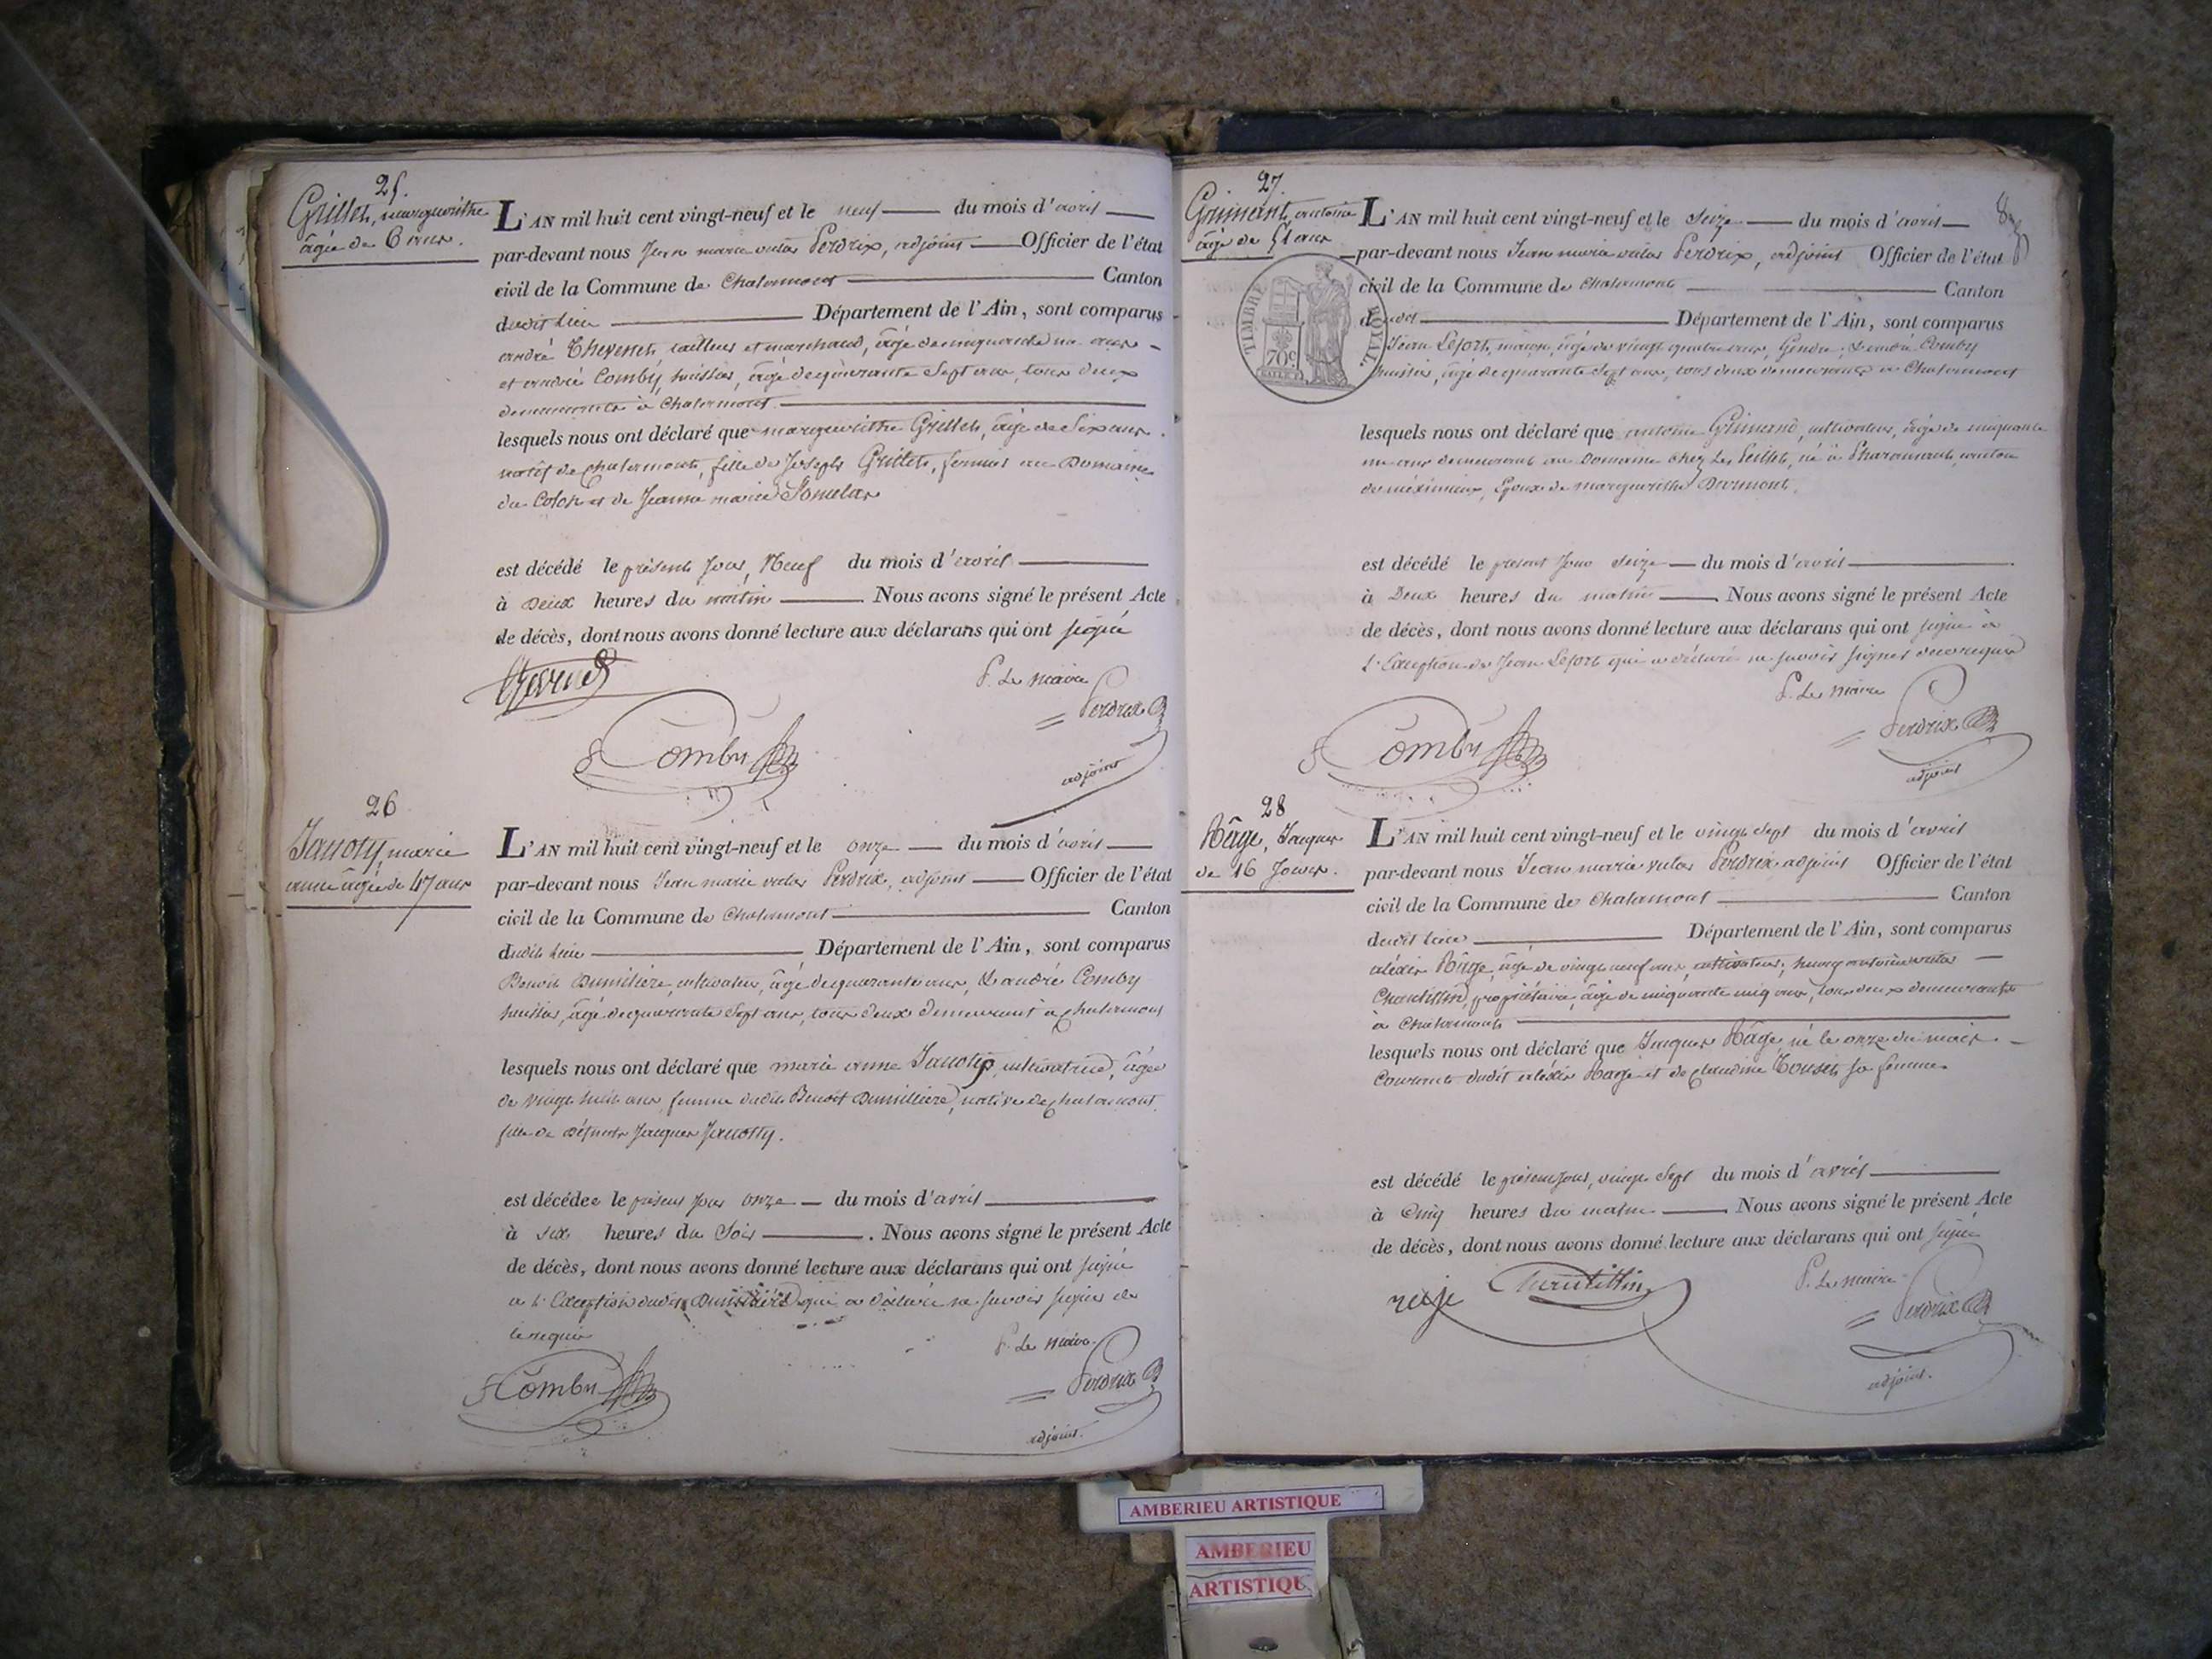 25.
Grillet, marguerithe
âgée de 6 ans.
L'AN mil huit cent vingt-neuf et le neuf du mois d'avril
par-devant nous Jean marie Perdrix, adjoint Officier de l'état
civil de la Commune de Chalamont Canton
dudit lieu Département de l'Ain, sont comparus
andré Thevenet, tailleur et marchand, âgé de cinquante un ans
et andré Comby, huissier, âgé de quarante sept ans, tous deux
demeurants à Chalamont
lesquels nous ont déclaré que marguerithe Grillet, âgée de Six ans.
natif de Chalamont, fille de Joseph Grillet, fermier au Domaine
du Colon et de Jeanne marie
est décédé le présent jour, Neuf du mois d'avril
à Deux heures du matin Nous avons signé le présent Acte
de décès, dont nous avons donné lecture aux déclarans qui ont signé
P. Le maire
Perdrix
Comby
adjoint
26
Janoty marie
anne âgée de 47 ans
L'AN mil huit cent vingt-neuf et le onze du mois d'avril
par-devant nous Jean marie Perdrix, adjoint Officier de l'état
civil de la Commune de Chalamont Canton
dudit lieu Département de l'Ain, sont comparus
Benoit Dumilière, cultivateur, âgé de quarante ans, & andré Comby
huissier, âgé de quarante sept ans, tous deux demeurant à Chalamont
lesquels nous ont déclaré que marie anne Janoty, cultivatrice, âgée
de vingt huit ans femme dudit Benoit Dumillière, native de Chalamont
fille de défunt Jacques Janotty.
est décédée le présent jour onze du mois d'avril
à six heures du Soir. Nous avons signé le présent Acte
de décès, dont nous avons donné lecture aux déclarans qui ont signé
a l'Exception dudit Dumilière qui a déclaré ne savoir signer de
ce requis
P. Le maire.
Comby
Perdrix
adjoint.
27.
8
Grimant, antoine
âgé de 51 ans
L'AN mil huit cent vingt-neuf et le Seize du mois d'avril
par-devant nous Jean marie Perdrix, adjoint Officier de l'état
civil de la Commune de Chalamont Canton
dudit Département de l'Ain, sont comparus
TIMBRE ROYAL
70c
Jean Lefort, maçon, âgé de vingt quatre ans, Gendre; & andré Comby
huissier, âgé de quarante Sept ans, tous deux demeurants à Chalamont
lesquels nous ont déclaré que antoine Grimand, cultivateur, âgé de cinquante
un ans demeurant au Domaine chez Les, né à, canton
de méximieux, Epoux de marguerithe Dumont.
est décédé le présent Jour Seize du mois d'avril
à Deux heures du matin. Nous avons signé le présent Acte
de décès, dont nous avons donné lecture aux déclarans qui ont signé à
L'Exception de Jean Lefort qui a déclaré ne savoir signer de ce requis
P. Le maire
Perdrix
Comby
adjoint
28
Râge, Jacques
de 16 Jours.
L'AN mil huit cent vingt-neuf et le vingt Sept du mois d'avril
par-devant nous Jean marie Perdrix adjoint Officier de l'état
civil de la Commune de Chalamont Canton
dudit lieu Département de l'Ain, sont comparus
aléxis Râge, âgé de vingt neuf ans, cultivateur;
Chantillin, propriétaire, âgé de cinquante cinq ans, tous deux demeurants
à Chalamont
lesquels nous ont déclaré que Jacques Râge, né le onze du mois
Courant dudit aléxis Rage et de Claudine Touset, Sa femme
est décédé le présent jour, vingt Sept du mois d'avril
à Cinq heures du matin. Nous avons signé le présent Acte
de décès, dont nous avons donné lecture aux déclarans qui ont signé
P. Le maire
raje Chantillin
Perdrix
adjoint.
AMBERIEU ARTISTIQUE
AMBERIEU
ARTISTIQU